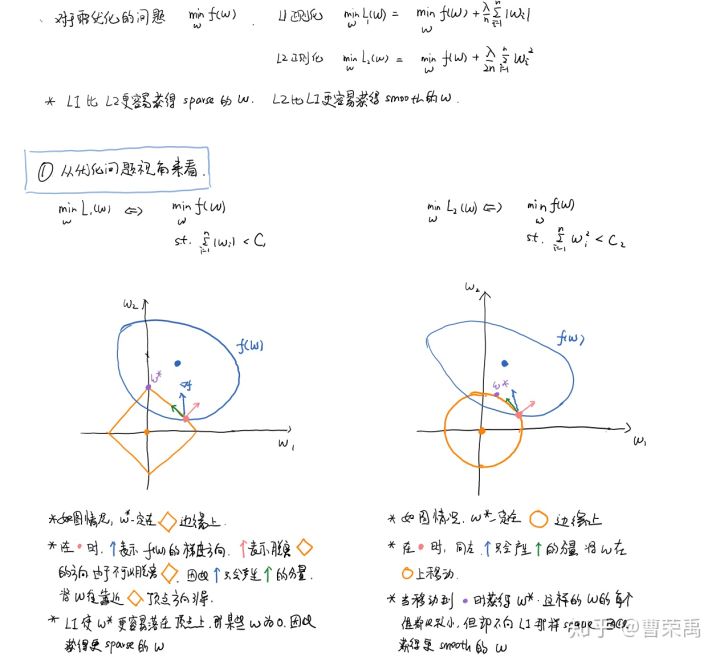 对于需优化的问题 min f(w). L1正则化 min L₁(w) = min f(w) + λ/n Σ |wᵢ|
w w w i=1 n
L2正则化 min L₂(w) = min f(w) + λ/2n Σ wᵢ²
w w i=1 n
* L1比L2更容易获得sparse的w. L2比L1更容易获得smooth的w.
① 从优化问题视角来看.
min L₁(w) <=> min f(w)
w w
st. Σ |wᵢ| < C₁
i=1 n
min L₂(w) <=> min f(w)
w w
st. Σ wᵢ² < C₂
i=1 n
w₂
f(w)
w*
∇f
w₁
w₂
f(w)
w*
w₁
* 如图情况, w*一定在◇边缘上.
* 在•时, ↑表示f(w)的梯度方向. ↑表示脱离◇
的方向 由于不可以脱离◇, 因此↑只会产生↑的分量.
将w在靠近◇顶点方向
* L1使w*更容易在顶点上, 即某些w为0. 因此
获得更sparse的w
* 如图情况, w*一定在○边缘上
* 在•时, 同左, ↑只会产生↑的分量 将w在
○上移动.
* 当移动到•时获得w*. 这样的w的每个
值都比较小, 但却不向L1那样sparse
获得更smooth的w
知乎 @曹荣禹